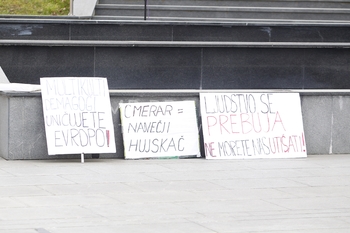 MULTIKULTI
DEMAGOGI
UNIČUJETE
EVROPO!
CMERAR =
NAVEČJI
HUJSKAČ
LJUDSTVO SE
PREBUJA
NE MORETE NAS UTIŠATI!